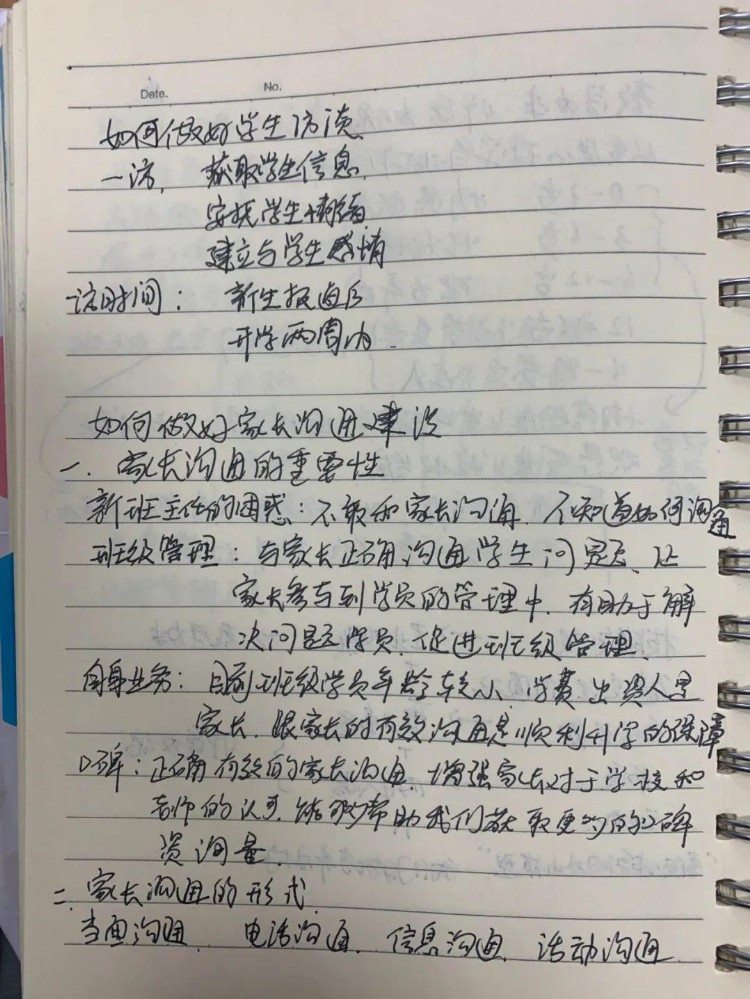 Date. No.
如何做好学生访谈
一访, 获取学生信息,
安抚学生情绪
建立与学生感情
访时间: 新生报道后
开学两周内.
如何做好家长沟通建设
一. 家长沟通的重要性
新班主任的困惑: 不敢和家长沟通, 不知道如何沟通
班级管理: 与家长正确沟通学生问题, 让
家长参与到学员的管理中, 有助于解
决问题学员, 促进班级管理.
自身业务: 目前班级学员年龄较小, 学费出资人是
家长, 跟家长的有效沟通是顺利升学的保障
口碑: 正确有效的家长沟通, 增强家长对于学校和
老师的认可, 能够帮助我们获取更多的口碑
资询量.
二. 家长沟通的形式
当面沟通, 电话沟通, 信息沟通, 活动沟通